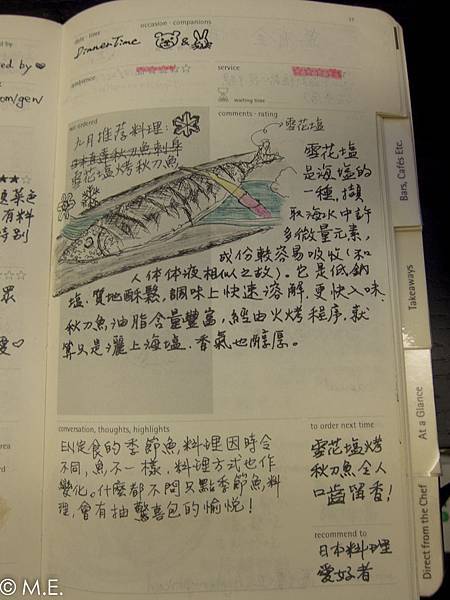 date · time
occasion · companions
17
DinnerTime
&
ambience
service
waiting time
we ordered
comments · rating
九月推荐料理:
雪花塩烤秋刀魚
雪花塩
雪花塩
是海塩的
一種,擷
取海水中許
多微量元素,
成份較容易吸收(和
人体体液相似之故)。它是低鈉
塩.質地酥鬆,調味上快速溶解.更快入味.
秋刀魚油脂含量豐富,經由火烤程序.就
算只是灑上海塩.香氣也醇厚。
conversation, thoughts, highlights
EN定食的季節魚,料理因時令
不同,魚不一樣.料理方式也作
變化。什麼都不問只點季節魚料
理,會有抽驚喜包的愉悅!
to order next time
雪花塩烤
秋刀魚.令人
口齒留香!
recommend to
日本料理
愛好者
Bars, Cafés Etc.
Takeaways
At a Glance
Direct from the Chef
© M.E.